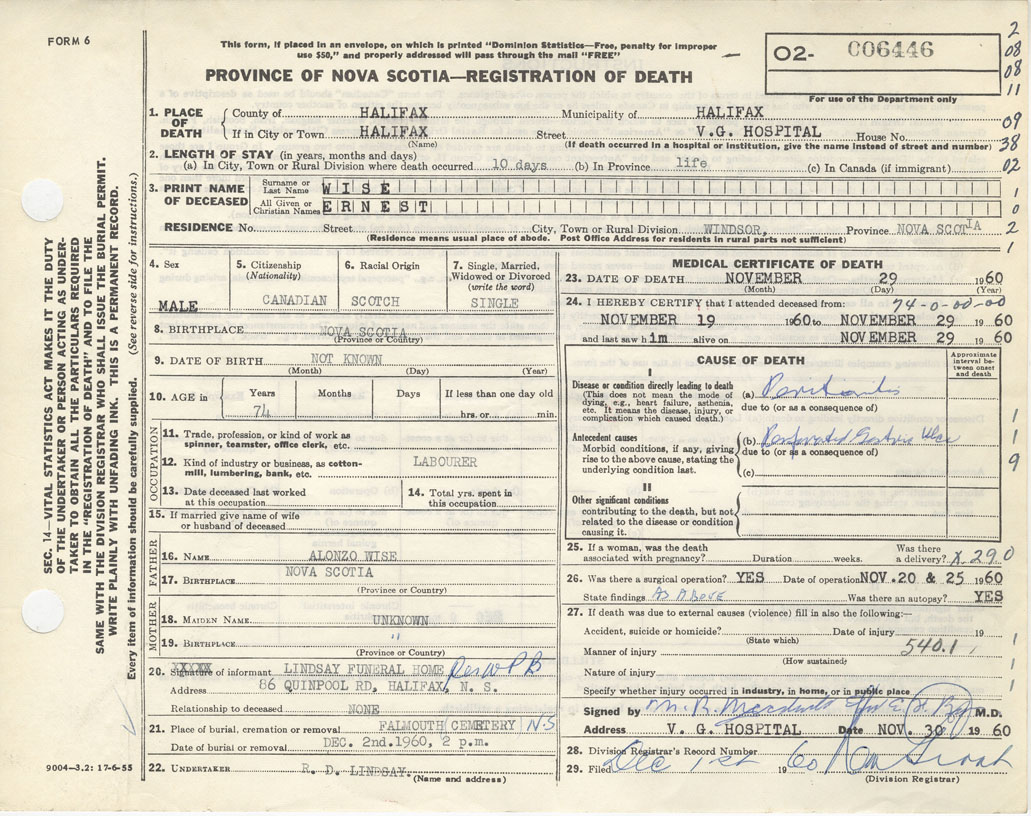 FORM 6
This form, if placed in an envelope, on which is printed "Dominion Statistics—Free, penalty for improper
use $50," and properly addressed will pass through the mail "FREE"
PROVINCE OF NOVA SCOTIA—REGISTRATION OF DEATH
02- 006446
For use of the Department only
2
08
08
11
09
38
02
1
0
2
1
1. PLACE OF DEATH
County of HALIFAX Municipality of HALIFAX
If in City or Town HALIFAX Street V.G. HOSPITAL House No.
(Name) (If death occurred in a hospital or institution, give the name instead of street and number)
2. LENGTH OF STAY (in years, months and days)
(a) In City, Town or Rural Division where death occurred 10 days (b) In Province life (c) In Canada (if immigrant)
3. PRINT NAME OF DECEASED
Surname or Last Name WISE
All Given or Christian Names ERNEST
RESIDENCE No. Street City, Town or Rural Division WINDSOR, Province NOVA SCOTIA
(Residence means usual place of abode. Post Office Address for residents in rural parts not sufficient)
4. Sex
MALE
5. Citizenship
(Nationality)
CANADIAN
6. Racial Origin
SCOTCH
7. Single, Married,
Widowed or Divorced
(write the word)
SINGLE
8. BIRTHPLACE NOVA SCOTIA
(Province or Country)
9. DATE OF BIRTH NOT KNOWN
(Month) (Day) (Year)
10. AGE in Years Months Days If less than one day
74 hrs. or min.
OCCUPATION
11. Trade, profession, or kind of work as
spinner, teamster, office clerk, etc.
12. Kind of industry or business, as cotton-
mill, lumbering, bank, etc. LABOURER
13. Date deceased last worked
at this occupation
14. Total yrs. spent in
this occupation
15. If married give name of wife
or husband of deceased
FATHER
16. NAME ALONZO WISE
17. BIRTHPLACE NOVA SCOTIA
(Province or Country)
MOTHER
18. MAIDEN NAME UNKNOWN
19. BIRTHPLACE "
(Province or Country)
XXXXX
20. Signature of informant LINDSAY FUNERAL HOME Per W P B
Address 86 QUINPOOL RD, HALIFAX, N. S.
Relationship to deceased NONE
21. Place of burial, cremation or removal FALMOUTH CEMETERY N-S
Date of burial or removal DEC. 2nd.1960, 2 p.m.
22. UNDERTAKER R. D. LINDSAY.
(Name and address)
MEDICAL CERTIFICATE OF DEATH
23. DATE OF DEATH NOVEMBER 29 1960
(Month) (Day) (Year)
24. I HEREBY CERTIFY that I attended deceased from: 74-0-00-00
NOVEMBER 19 1960 to NOVEMBER 29 1960
and last saw him alive on NOVEMBER 29 1960
CAUSE OF DEATH
Approximate
interval be-
tween onset
and death
I
Disease or condition directly leading to death
(This does not mean the mode of
dying, e.g., heart failure, asthenia,
etc. It means the disease, injury, or
complication which caused death.)
(a) Peritonitis
due to (or as a consequence of)
Antecedent causes
Morbid conditions, if any, giving
rise to the above cause, stating the
underlying condition last.
(b) Perforated Gastric Ulcer
due to (or as a consequence of)
(c)
II
Other significant conditions
contributing to the death, but not
related to the disease or condition
causing it.
1
1
9
25. If a woman, was the death
associated with pregnancy? Duration weeks. Was there
a delivery? X 290
26. Was there a surgical operation? YES Date of operation NOV.20 & 25 1960
State findings As Above Was there an autopsy? YES
27. If death was due to external causes (violence) fill in also the following:—
Accident, suicide or homicide? Date of injury 19
(State which)
540.1
Manner of injury
(How sustained)
Nature of injury
Specify whether injury occurred in industry, in home, or in public place
1
1
1
Signed by M.D.
Address V. G. HOSPITAL Date NOV. 30 1960
28. Division Registrar's Record Number
29. Filed Dec 1st 1960
(Division Registrar)
SEC. 14—VITAL STATISTICS ACT MAKES IT THE DUTY
OF THE UNDERTAKER OR PERSON ACTING AS UNDER-
TAKER TO OBTAIN ALL THE PARTICULARS REQUIRED
IN THE "REGISTRATION OF DEATH" AND TO FILE THE
SAME WITH THE DIVISION REGISTRAR WHO SHALL ISSUE THE BURIAL PERMIT.
WRITE PLAINLY WITH UNFADING INK. THIS IS A PERMANENT RECORD.
Every item of information should be carefully supplied. (See reverse side for instructions.)
9004-3.2: 17-6-55